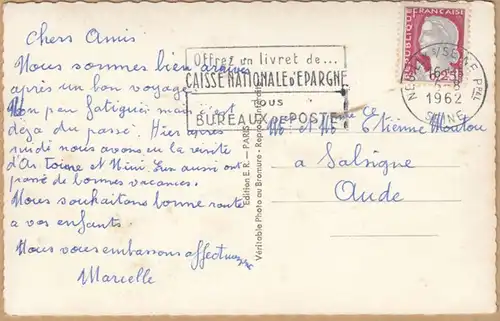 Chers Amis
Nous sommes bien arrivés
après un bon voyage
un peu fatiguer mais c'est
deja du passé. Hier après
midi nous avons eu la visite
d'As toine et Nini. Eux aussi ont
passé de bonnes vacances.
Nous souhaitons bonne route
a vos enfants.
Nous vous embrassons affect
Marcelle
Offrez un livret de...
CAISSE NATIONALE D'EPARGNE
TOUS
BUREAUX DE POSTE
REPUBLIQUE FRANÇAISE
S/SEINE PPAL
1962
SEINE
Edition E. R. — PARIS
Véritable Photo au Bromure - Reproduction
Mr et Mme Etienne Moutou
a Salsigne
Aude